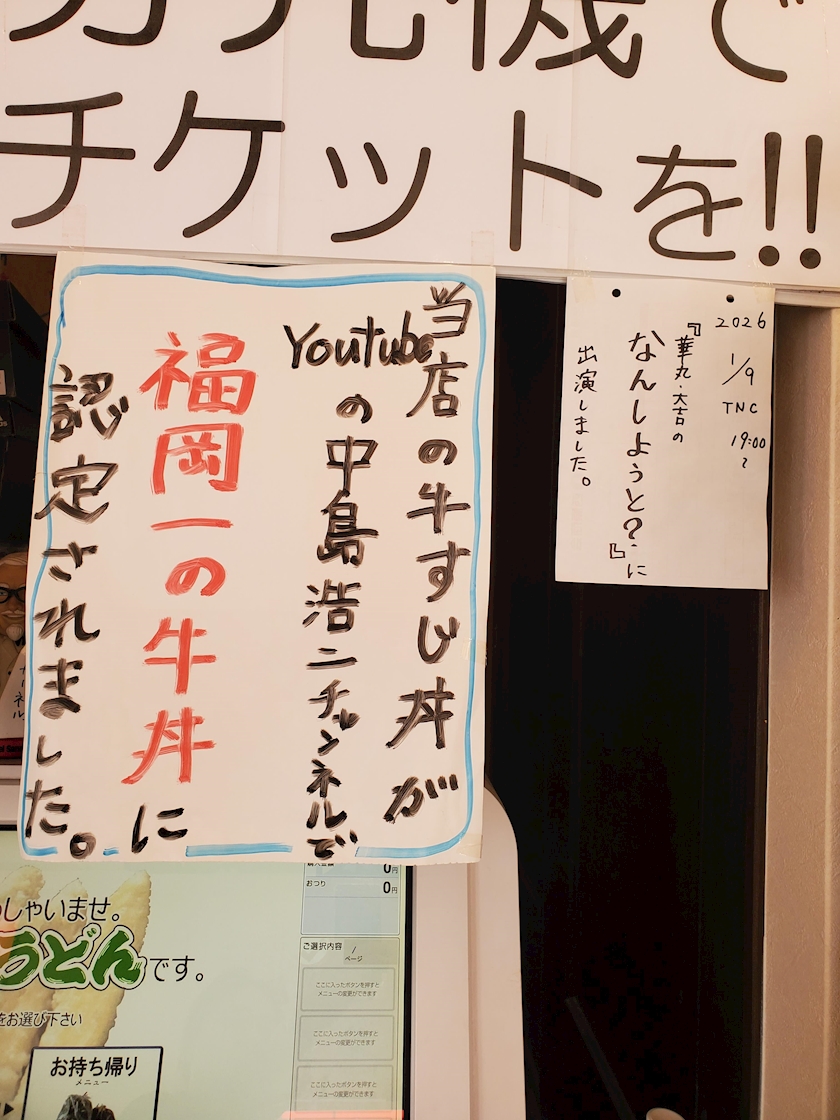 券売機で
チケットを!!
当店の牛すじ丼が
Youtubeの中島浩二チャンネルで
福岡一の牛丼に
認定されました。
2026
1/9
TNC
19:00
~
『華丸・大吉の
なんしようと?』に
出演しました。
0円
おつり
0円
しゃいませ。
うどんです。
をお選び下さい
お持ち帰り
メニュー
ご選択内容
/
ページ
ここに入ったボタンを押すと
メニューの変更ができます
ここに入ったボタンを押すと
メニューの変更ができます
ここに入ったボタンを押すと
メニューの変更ができます